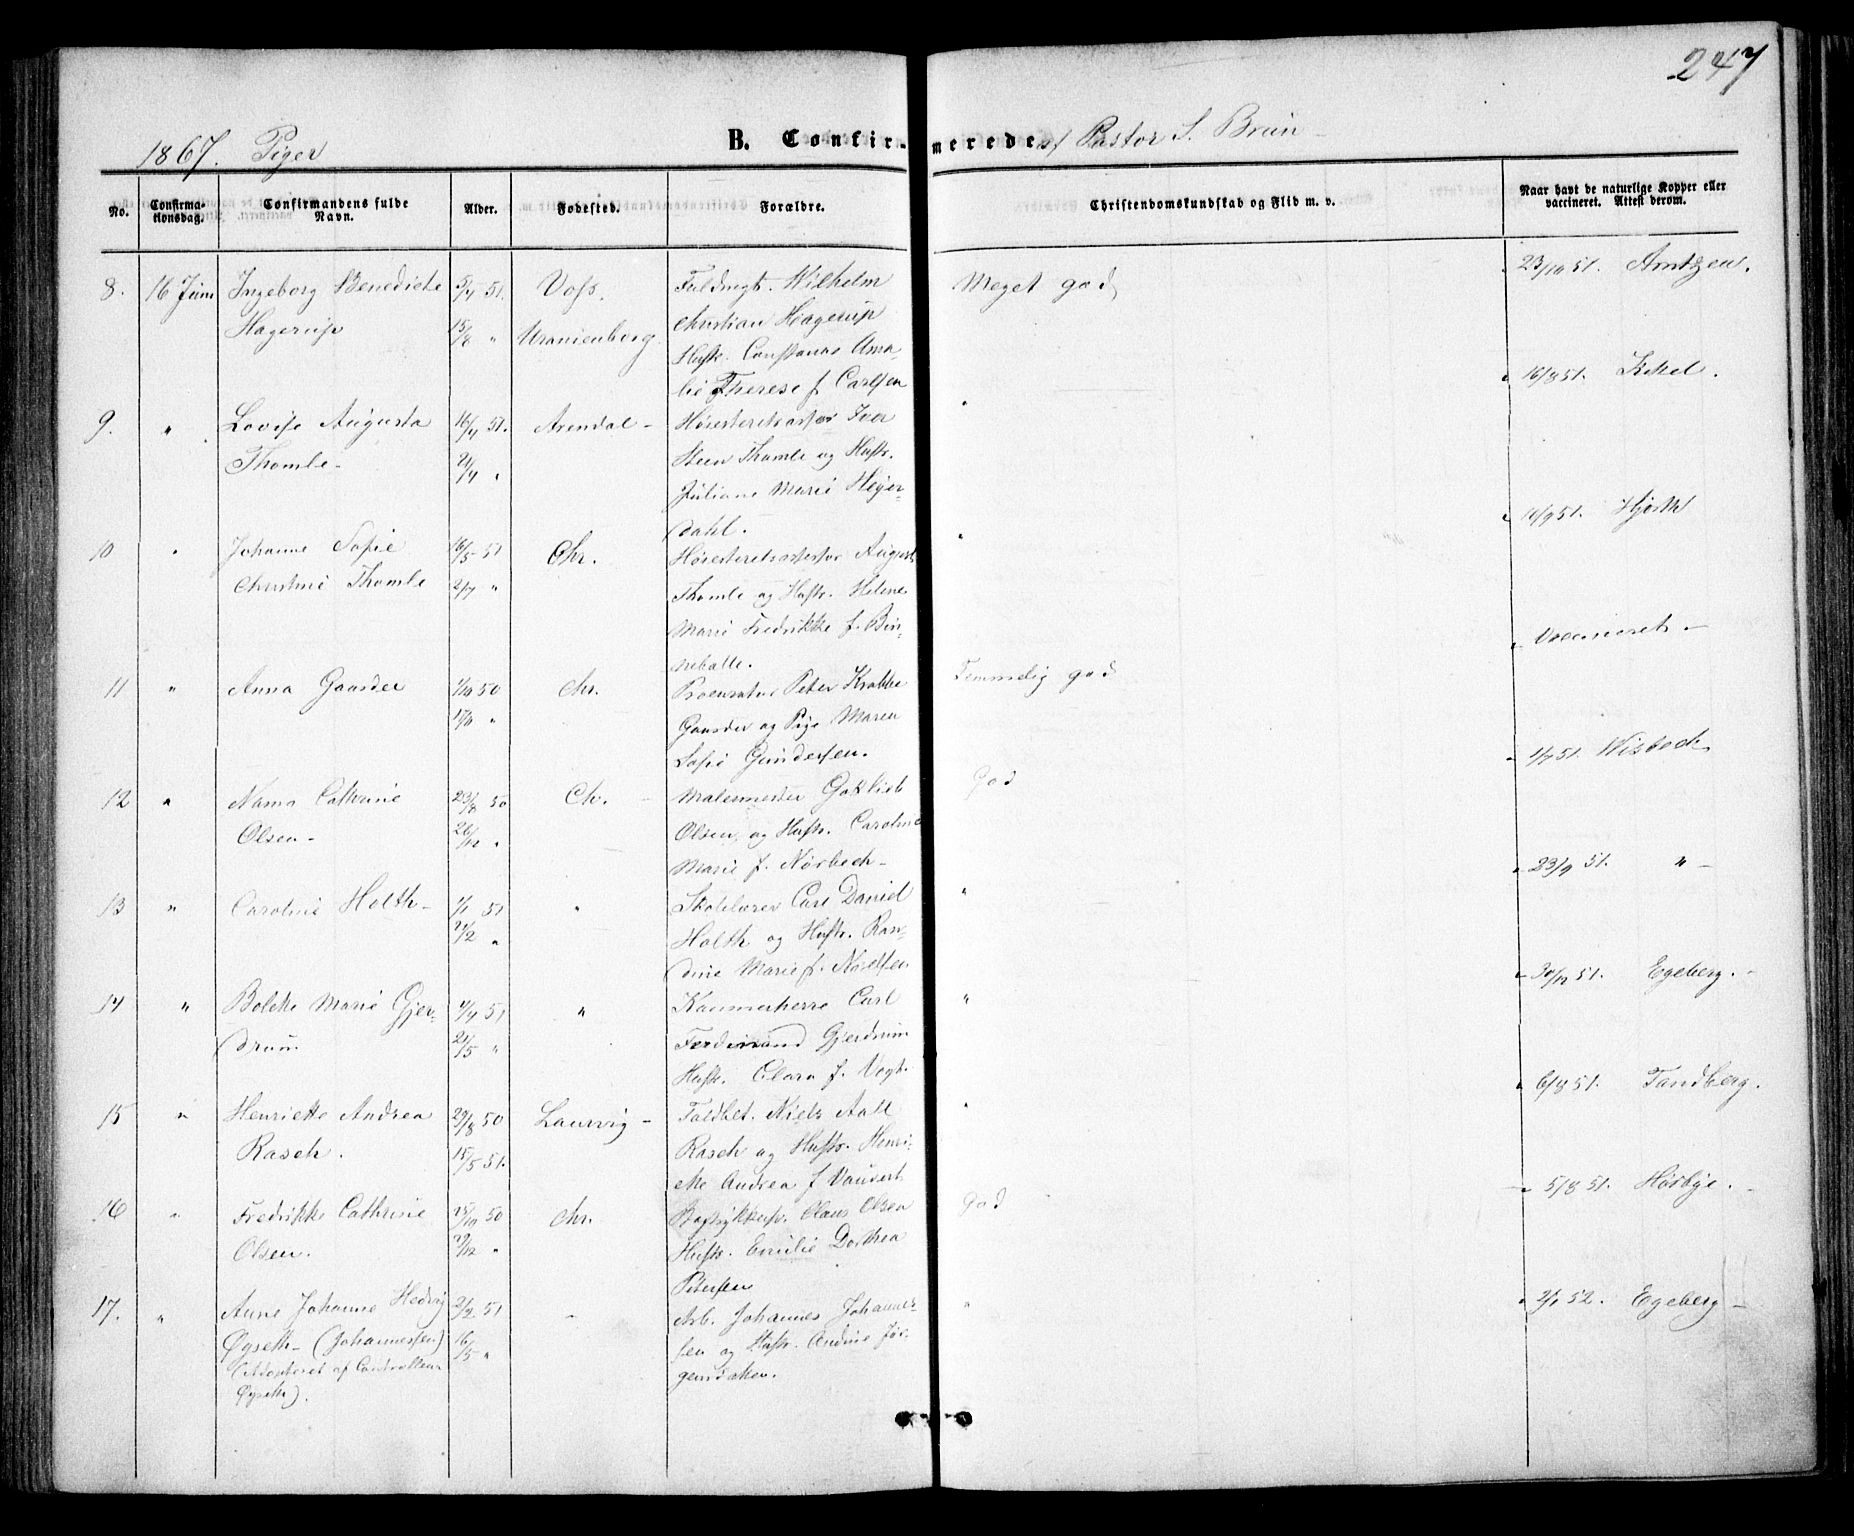 247
1867. Piger B. Confirmerede af Pastor S. Brun
No. Confirma- tionsdag. Confirmandens fulde Navn. Alder. Fødested. Forældre. Christendomskundskab og Flid m. v. Naar havt de naturlige Kopper eller vaccineret. Attest derom.
8. 16 Juni Ingeborg Benedicte 5/4 51. Voss. Fuldmgt. Wilhelm Meget god 23/10 51. Arntzen.
Hagerup 15/8 " Uranienborg. Christian Hagerup
Hustr. Constance Ama-
lie Therese f. Carlsen 16/8 51.
9. " Lovise Augusta 16/4 51. Arendal - Høiesteretsassessor Iver "
Thomle - 21/4 " Steen Thomle og Hustr.
Juliane Marie Heyer-
dahl. 16/9 51. Hjorth
10 " Johanne Sofie 16/5 51 Chr. Høiesteretsassessor August "
Christine Thomle 2/7 " Thomle og Hustr. Helene
Marie Fredrikke f. Bin-
neballe. Vaccineret -
11 " Anna Gaarder 1/10 50 Chr. Procurator Peter Krabbe Temmelig god
17/11 " Gaarder og Pige Maren
Sofie Gundersen. 1/7 51. Wisbech
12 " Nanna Cathrine 23/8 50 Ch. - Malermester Gottlieb God
Olsen - 26/12 " Olsen og Hustr. Caroline
Marie f. Nørbech - 23/9 51. " -
13 " Caroline Holth - 1/1 51 " Skolelærer Carl Daniel "
21/2 " Holth og Hustr. Ran-
dine Marie f. 30/12 51. Egeberg. -
14 " Bolette Marie Gjer- 4/4 51 " Kammerherre Carl "
drum 21/5 " Ferdinand Gjerdrum
Hustr. Clara f. Vogt. 6/8 51. Tandberg.
15 " Henriette Andrea 29/8 50 Laurvig - Toldbet. Niels Aall "
Rasch. 15/5 51. Rasch og Hustr. Henri-
ette Andrea f 5/8 51. Hørbye. -
16 " Fredrikke Cathrine 25/10 50 Chr. Claus Olsen God
Olsen. 29/12 " Hustr. Emilie Dorthea
Petersen
17. " Anne Johanne Hedvig 2/2 51 " Arb. Johannes Johannes- " 2/1 52. Egeberg -
Øyseth - (Johannessen) 16/5 " sen og Hustr. Andine Jør-
(Adopteret af Controlleur gensdatter.
Øyseth).